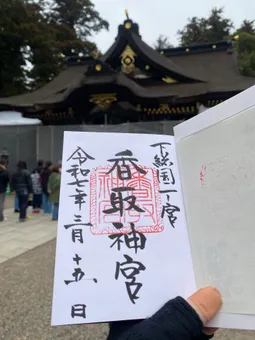 下総国一ノ宮
香取神宮
令和七年三月十五日